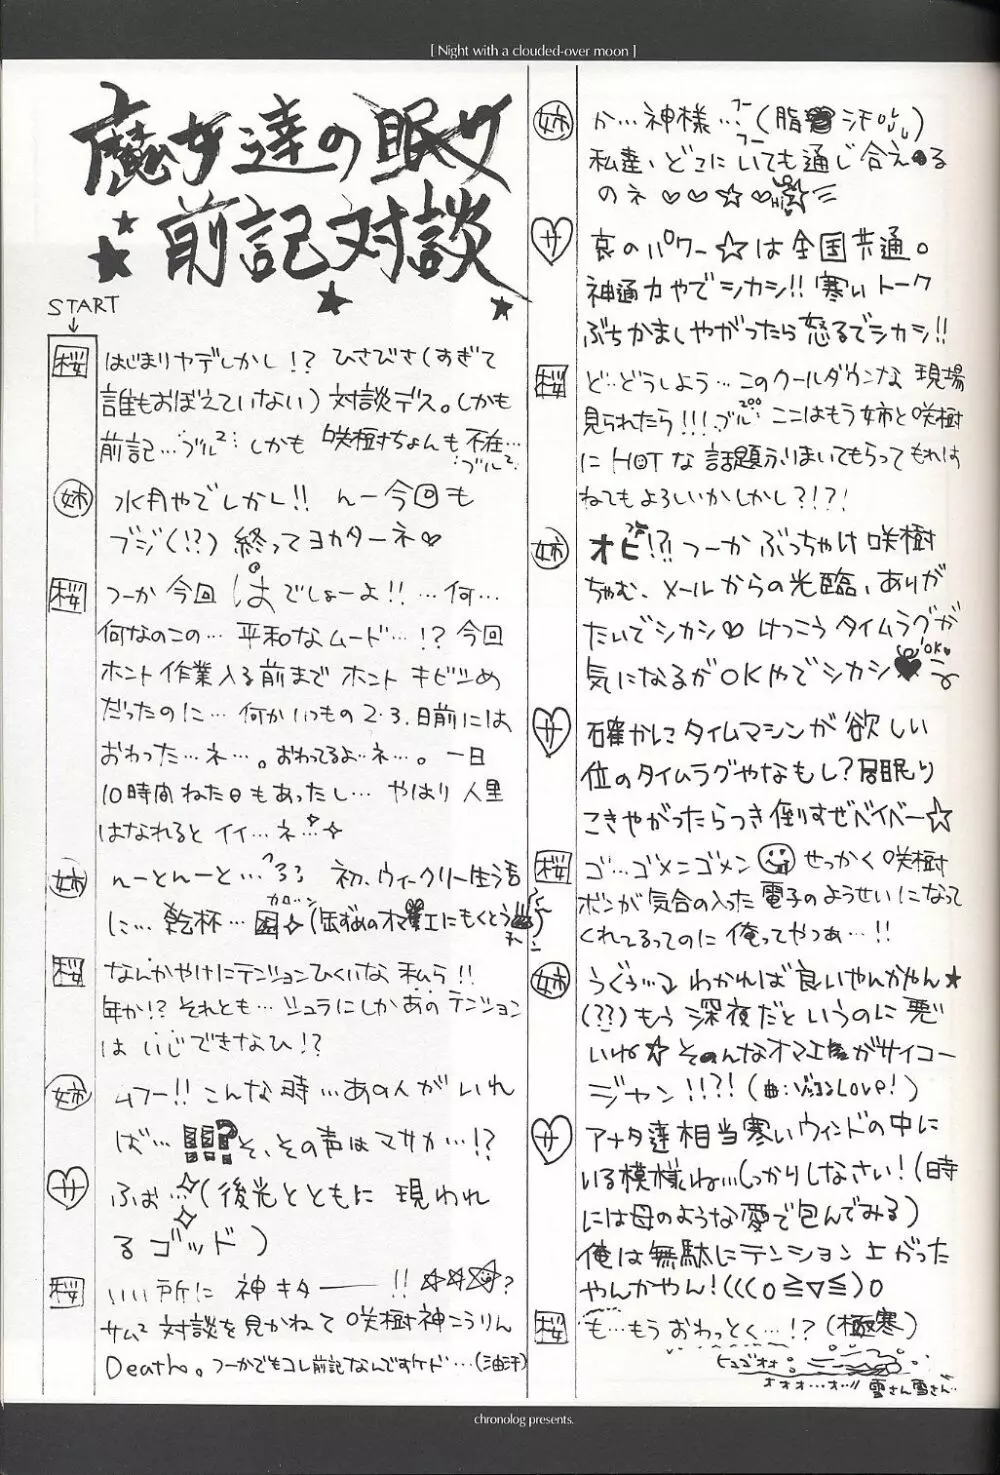 [ Night with a clouded-over moon ]
魔女達の眠り
前記対談
START
桜 はじまりヤデしかし!? ひさびさ(すぎて
誰もおぼえていない) 対談デス。しかも
前記…ブル² しかも 咲樹ちょんも不在…
ブル²
姉 水月やでしかし!! んー今回も
ブジ(!?) 終ってヨカターネ♡
桜 つーか今回はでしょーよ!! …何…
何なのこの… 平和なムード…!? 今回
ホント作業入る前まで ホント キビシめ
だったのに… 何かいつもの 2・3.日前には
おわった…ネ…。おわってるよ…ネ…。 一日
10時間ねた日もあったし… やはり 人里
はなれると イイ…ネ…
姉 んーとんーと… 初、ウィークリー生活
に… 乾杯…
カローン
桜 なんかやけにテンションひくいな 私ら!!
年か!? それとも… ジュラにしかあのテンション
は いじできなひ!?
姉 ムフー!! こんな時…あの人がいれ
ば… !!!? そ、その声はマサカ…!?
サ ふぉ…(後光とともに 現われ
るゴッド)
桜 いい所に 神キター !! ☆☆☆?
サム² 対談を見かねて 咲樹神こうりん
Death。つーかでもコレ前記なんですケド…(油汗)
姉 か…神様…(脂 汗
フー
フー
私達、どこにいても通じ合える
のネ ♡♡☆♡
Hi
サ 哀のパワー☆は全国共通。
神通力やでシカシ!! 寒いトーク
ぶちかましやがったら怒るでシカシ!!
桜 ど…どうしよう… このクールダウンな 現場
見られたら!!! ブル²⁰⁰ ここはもう姉と咲樹
に HOTな 話題ふりまいてもらってもれは
ねてもよろしいかしかし?!?!
姉 オビ!?! つーか ぶっちゃけ咲樹
ちゃむ、メールからの光臨、ありが
たいでシカシ♡ けっこうタイムラグが
気になるがOKやでシカシ♥
OK♥
サ 確かにタイムマシンが欲しい
位のタイムラグやなもし? 居眠り
こきやがったらつき倒すぜベイベー☆
桜 ゴ…ゴメニゴメン せっかく咲樹
ボンが気合の入った 電子のようせいになって
くれてるってのに 俺ってやつぁ…!!
姉 うぐぅ… わかれば良いやんかやん★
(??)もう 深夜だというのに悪
いね☆ そのんなオマエがサイコー
ジャン !!?! (
Love!)
サ アナタ達相当寒いウィンドの中に
いる模様ね…しっかりしなさい! (時
には母のような愛で包んでみる)
俺は無駄にテンション上がった
やんかやん!(((o≧▽≦)o
桜 も…もう おわっとく…!? (極寒)
ヒュゴオオ。
オオオ…オ…!! 雪さん雪さん…
chronolog presents.